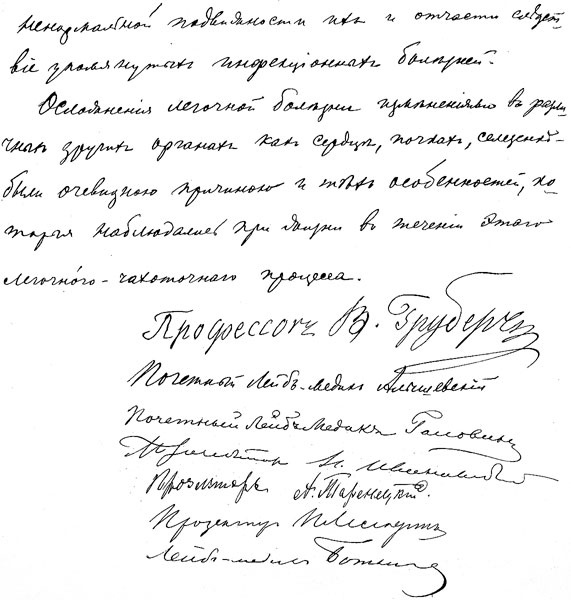 ненормальной подвижности ихъ и отчасти слѣдст-
віе упомянутыхъ инфекціонныхъ болѣзней.
Осложненія легочной болѣзни измѣненіями въ разли-
чныхъ другихъ органахъ какъ сердцѣ, почкахъ, селезенкѣ-
были очевидною причиною и тѣхъ особенностей, ко-
торыя наблюдались при жизни въ теченіи этого
легочного-чахоточнаго процесса.
Профессоръ В. Груберъ
Почетный Лейбъ-Медикъ Алышевскій
Почетный Лейбъ Медикъ Головинъ
Н. Ивановскій
Прозекторъ А. Таренецкій.
Прозекторъ П. Лесгафтъ
Лейбъ-медикъ Боткинъ